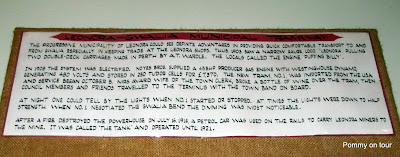 THE PROGRESSIVE MUNICIPALITY OF LEONORA COULD SEE DEFINITE ADVANTAGES IN PROVIDING QUICK COMFORTABLE TRANSPORT TO AND
FROM GWALIA ESPECIALLY IN KEEPING TRADE AT THE LEONORA SHOPS. THIS 1903 SAW A NARROW GAUGE LOCO LEONORA PULLING
TWO DOUBLE-DECK CARRIAGES MADE IN PERTH BY A.T. WARDLE. THE LOCALS CALLED THE ENGINE 'PUFFING BILLY'.
IN 1908 THE SYSTEM WAS ELECTRIFIED. NOYES BROS. SUPPLIED A 65BHP PRODUCER GAS ENGINE WITH WESTINGHOUSE DYNAMO
GENERATING 480 VOLTS AND STORED IN 260 TUDOR CELLS FOR £7,570. THE NEW TRAM NO.1 WAS IMPORTED FROM THE USA
AND SERVICE BEGAN OCTOBER 5. MRS WARD WIFE OF THE TOWN CLERK, BROKE A BOTTLE OF WINE OVER THE TRAM, THEN
COUNCIL MEMBERS AND FRIENDS TRAVELLED TO THE TERMINUS WITH THE TOWN BAND ON BOARD.
AT NIGHT ONE COULD TELL BY THE LIGHTS WHEN NO.1 STARTED OR STOPPED. AT TIMES THE LIGHTS WERE DOWN TO HALF
STRENGTH. WHEN NO.1 NEGOTIATED THE GWALIA BEND THE DIMMING WAS MOST NOTICEABLE.
AFTER A FIRE DESTROYED THE POWERHOUSE ON JULY 16, 1915 A PETROL CAR WAS USED ON THE RAILS TO CARRY LEONORA MINERS TO
THE MINE. IT WAS CALLED 'THE TANK' AND OPERATED UNTIL 1921.
Pommy on tour